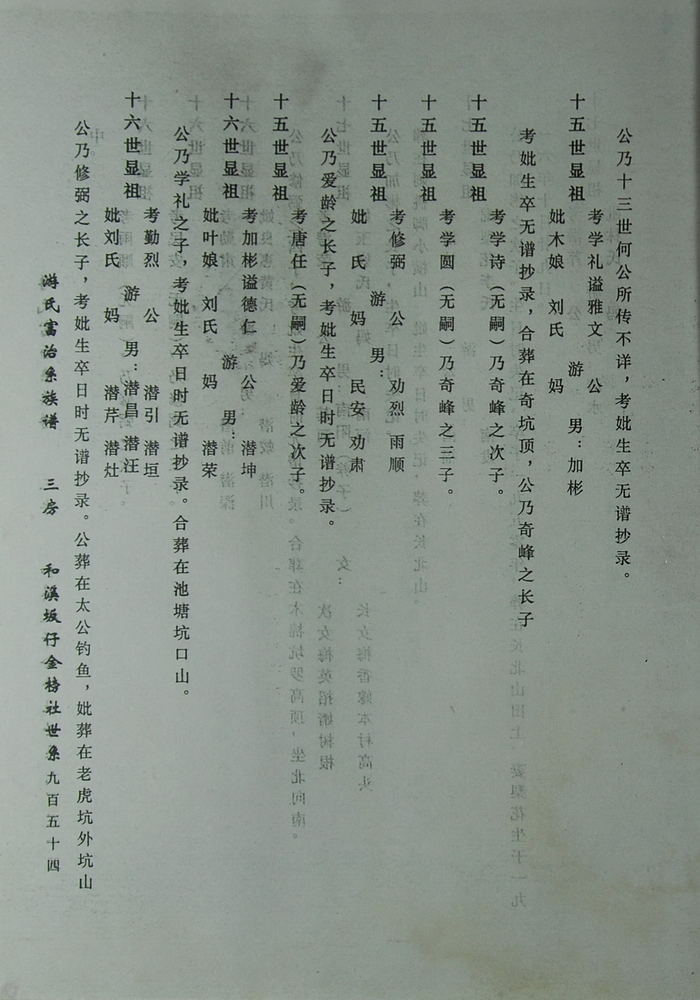 公乃十三世何公所传不详，考妣生卒无谱抄录。
十五世显祖
考学礼谥雅文
妣木娘 刘氏
公
妈
游
男：加彬
考妣生卒无谱抄录，合葬在奇坑顶，公乃奇峰之长子
十五世显祖
考学诗（无嗣）乃奇峰之次子。
十五世显祖
考学圆（无嗣）乃奇峰之三子。
十五世显祖
考修弼 公
妣 氏 妈
游
男：
劝烈 雨顺
民安 劝肃
公乃爱龄之长子，考妣生卒日时无谱抄录。
十五世显祖
考唐任（无嗣）乃爱龄之次子。
十六世显祖
考加彬谥德仁 公
妣叶娘 刘氏 妈
游
男：
潜坤
潜荣
公乃学礼之子，考妣生卒日时无谱抄录。合葬在池塘坑口山。
十六世显祖
考勤烈 公
妣刘氏 妈
游
男：
潜引 潜垣
潜昌 潜汪
潜芹 潜灶
公乃修弼之长子，考妣生卒日时无谱抄录。公葬在太公钓鱼，妣葬在老虎坑外坑山
游氏富治系族谱 三房 和溪坂仔金榜社世系九百五十四